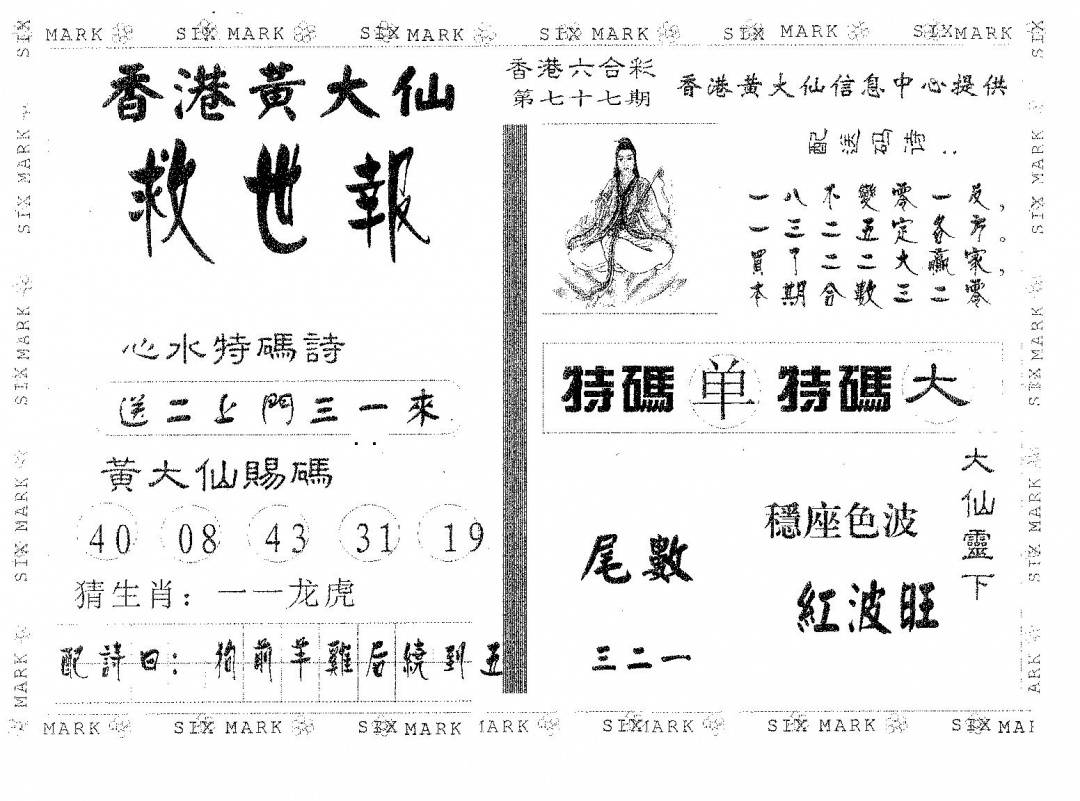 SIX MARK SIX MARK SIX MARK SIX MARK SIX MARK SIX MARK
香港黃大仙
救世報
心水特碼詩
送二上門三一來
黃大仙賜碼
40 08 43 31 19
猜生肖：一一龙虎
配詩曰：狗前羊雞后繞到五
香港六合彩
第七十七期
香港黃大仙信息中心提供
配送码诗：
一八不變零一反，
一三二五定各方。
買了二二大贏家，
本期合數三二零
特碼单特碼大
大仙靈下
穩座色波
紅波旺
尾數
三二一
MARK SIX MARK SIX MARK MARK SIX MARK SIX MARK SIX MA